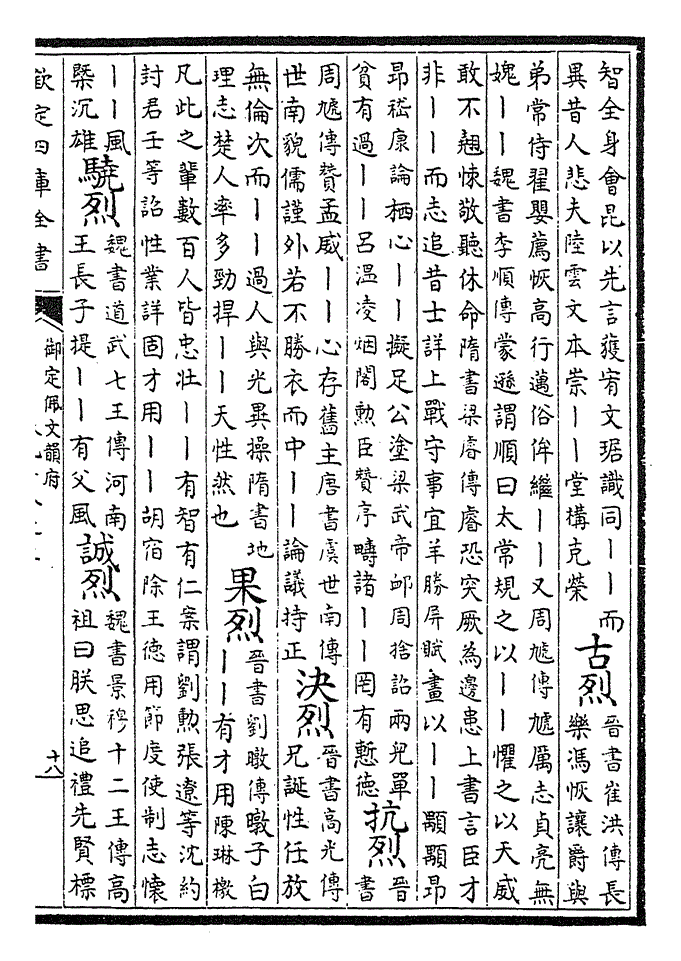 智全身會昆以先言獲宥文琚識同丨丨而
異昔人悲夫陸雲文本崇丨丨堂構克榮
古烈
晉書崔洪傳長
樂馮恢讓爵與
弟常侍翟嬰薦恢高行邁俗侔繼丨丨又周虓傳虓厲志貞亮無
媿丨丨魏書李順傳蒙遜謂順曰太常規之以丨丨懼之以天威
敢不翹悚敬聽休命隋書梁睿傳睿恐突厥為邊患上書言臣才
非丨丨而志追昔士詳上戰守事宜羊勝屏賦畫以丨丨顒顒昂
昂嵇康論栖心丨丨擬足公塗梁武帝卹周捨詔兩兒單
貧有過丨丨呂溫凌烟閣勲臣贊序疇諸丨丨罔有慙德
抗烈
晉
書
周虓傳贊孟威丨丨心存舊主唐書虞世南傳
世南貌儒謹外若不勝衣而中丨丨論議持正
決烈
晉書高光傳
兄誕性任放
無倫次而丨丨過人與光異操隋書地
理志楚人率多勁捍丨丨天性然也
果烈
晉書劉暾傳暾子白
丨丨有才用陳琳檄
凡此之輩數百人皆忠壯丨丨有智有仁案謂劉勲張遼等沈約
討君壬等詔性業詳固才用丨丨胡宿除王徳用節度使制志懷
丨丨風
槩沉雄
驍烈
魏書道武七王傳河南
王長子提丨丨有父風
誠烈
魏書景穆十二王傳高
祖曰朕思追禮先賢標
欽定四庫全書
御定佩文韻府
十八